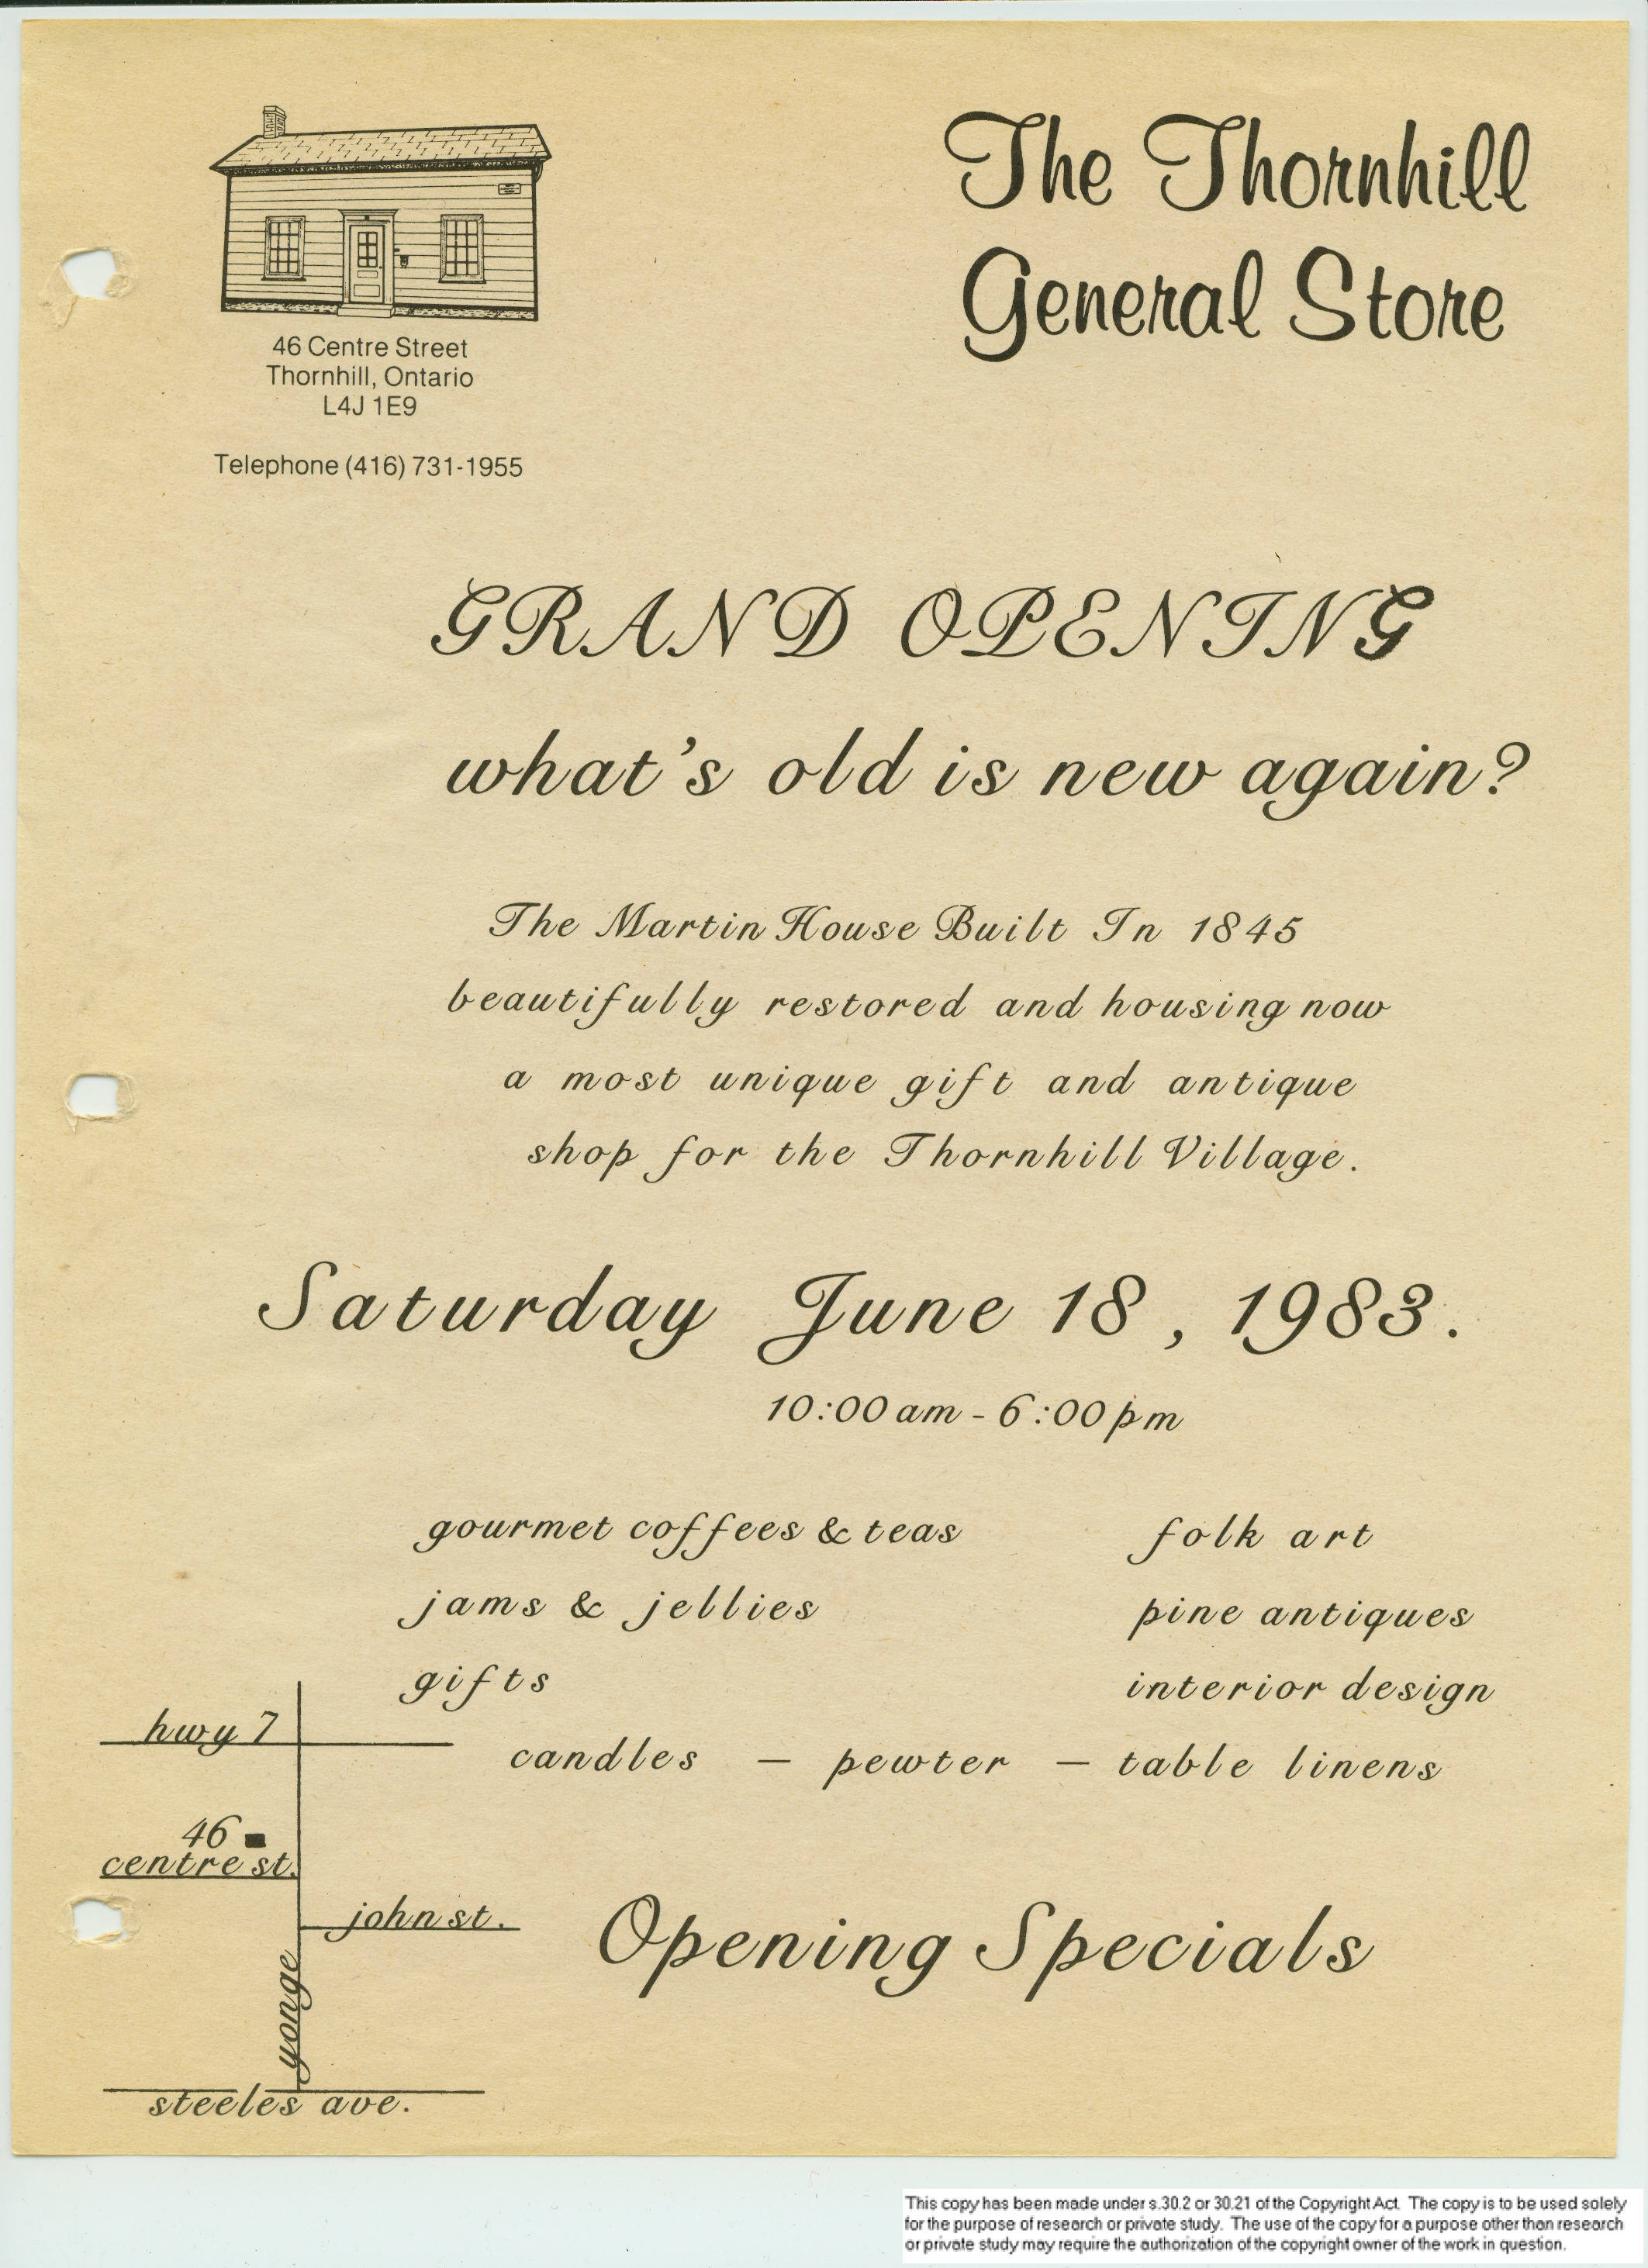 The Thornhill
General Store
46 Centre Street
Thornhill, Ontario
L4J 1E9
Telephone (416) 731-1955
GRAND OPENING
what's old is new again?
The Martin House Built In 1845
beautifully restored and housing now
a most unique gift and antique
shop for the Thornhill Village.
Saturday June 18, 1983.
10:00 am - 6:00 pm
gourmet coffees & teas
jams & jellies
gifts
folk art
pine antiques
interior design
candles - pewter - table linens
hwy 7
46
centre st.
john st.
yonge
steeles ave.
Opening Specials
This copy has been made under s.30.2 or 30.21 of the Copyright Act. The copy is to be used solely
for the purpose of research or private study. The use of the copy for a purpose other than research
or private study may require the authorization of the copyright owner of the work in question.